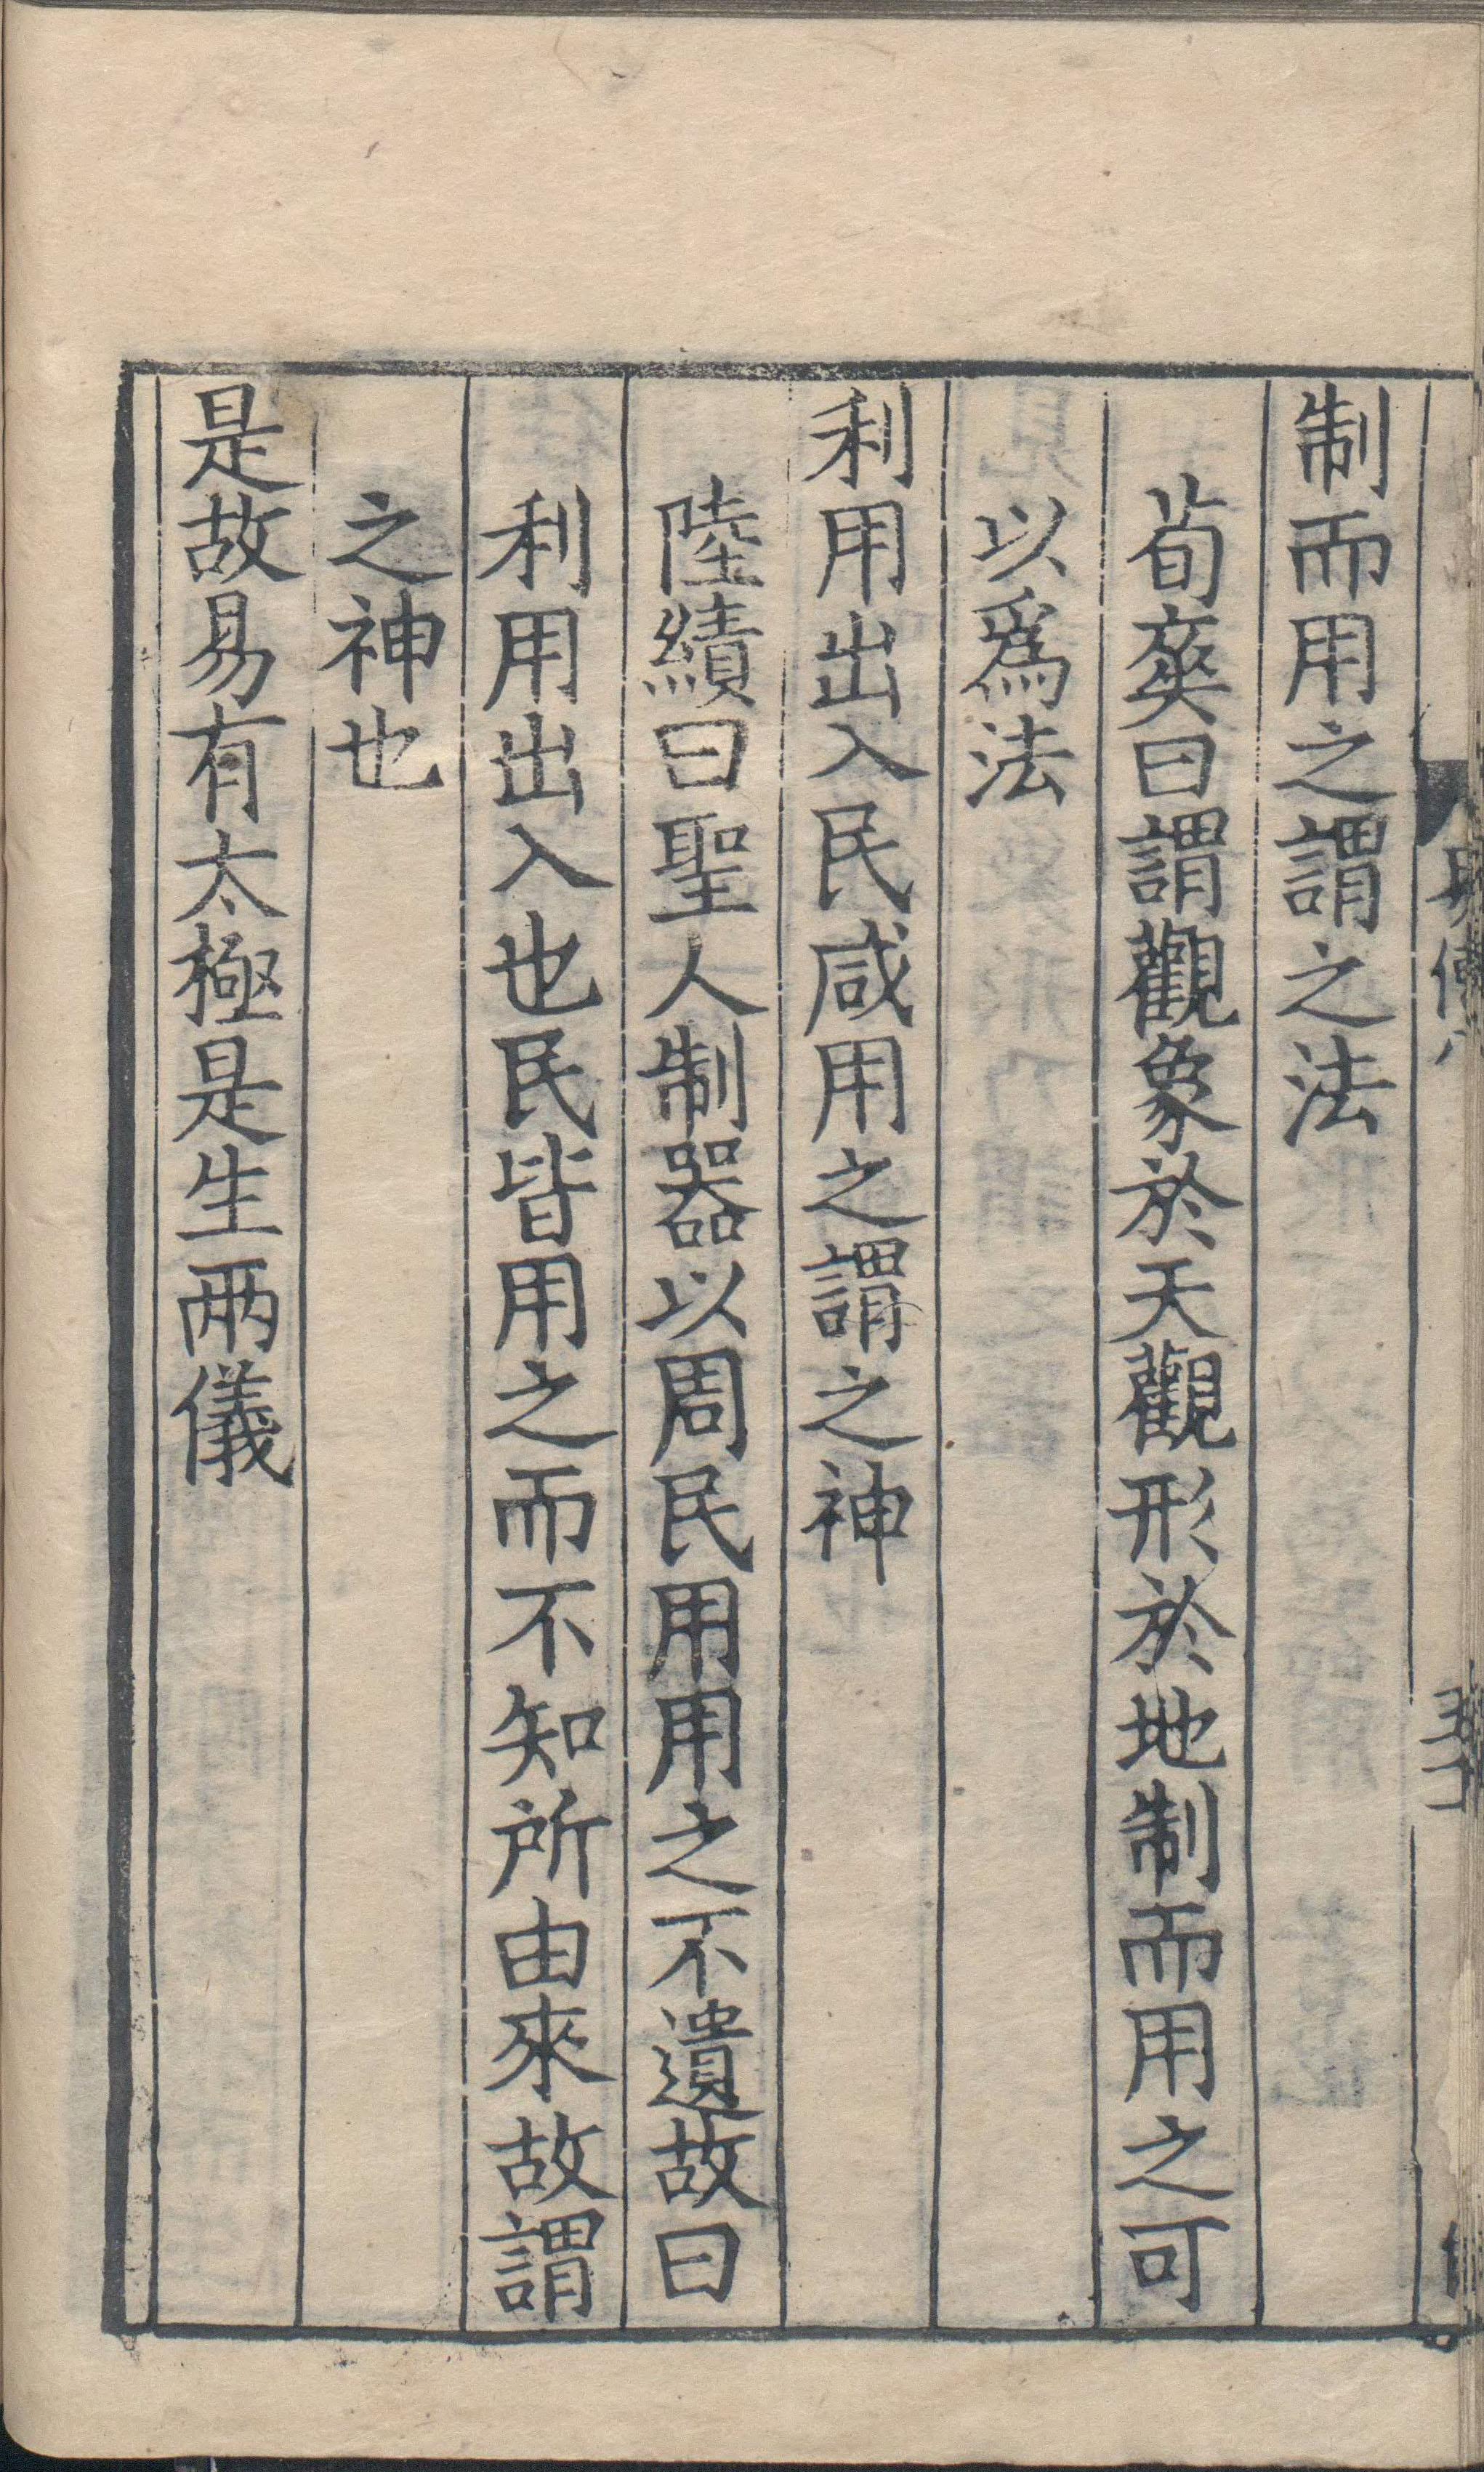 制而用之謂之法
荀奭曰謂觀象於天觀形於地制而用之可
以爲法
利用出入民咸用之謂之神
陸績曰聖人制器以周民用用之不遺故曰
利用出入也民皆用之而不知所由來故謂
之神也
是故易有太極是生兩儀